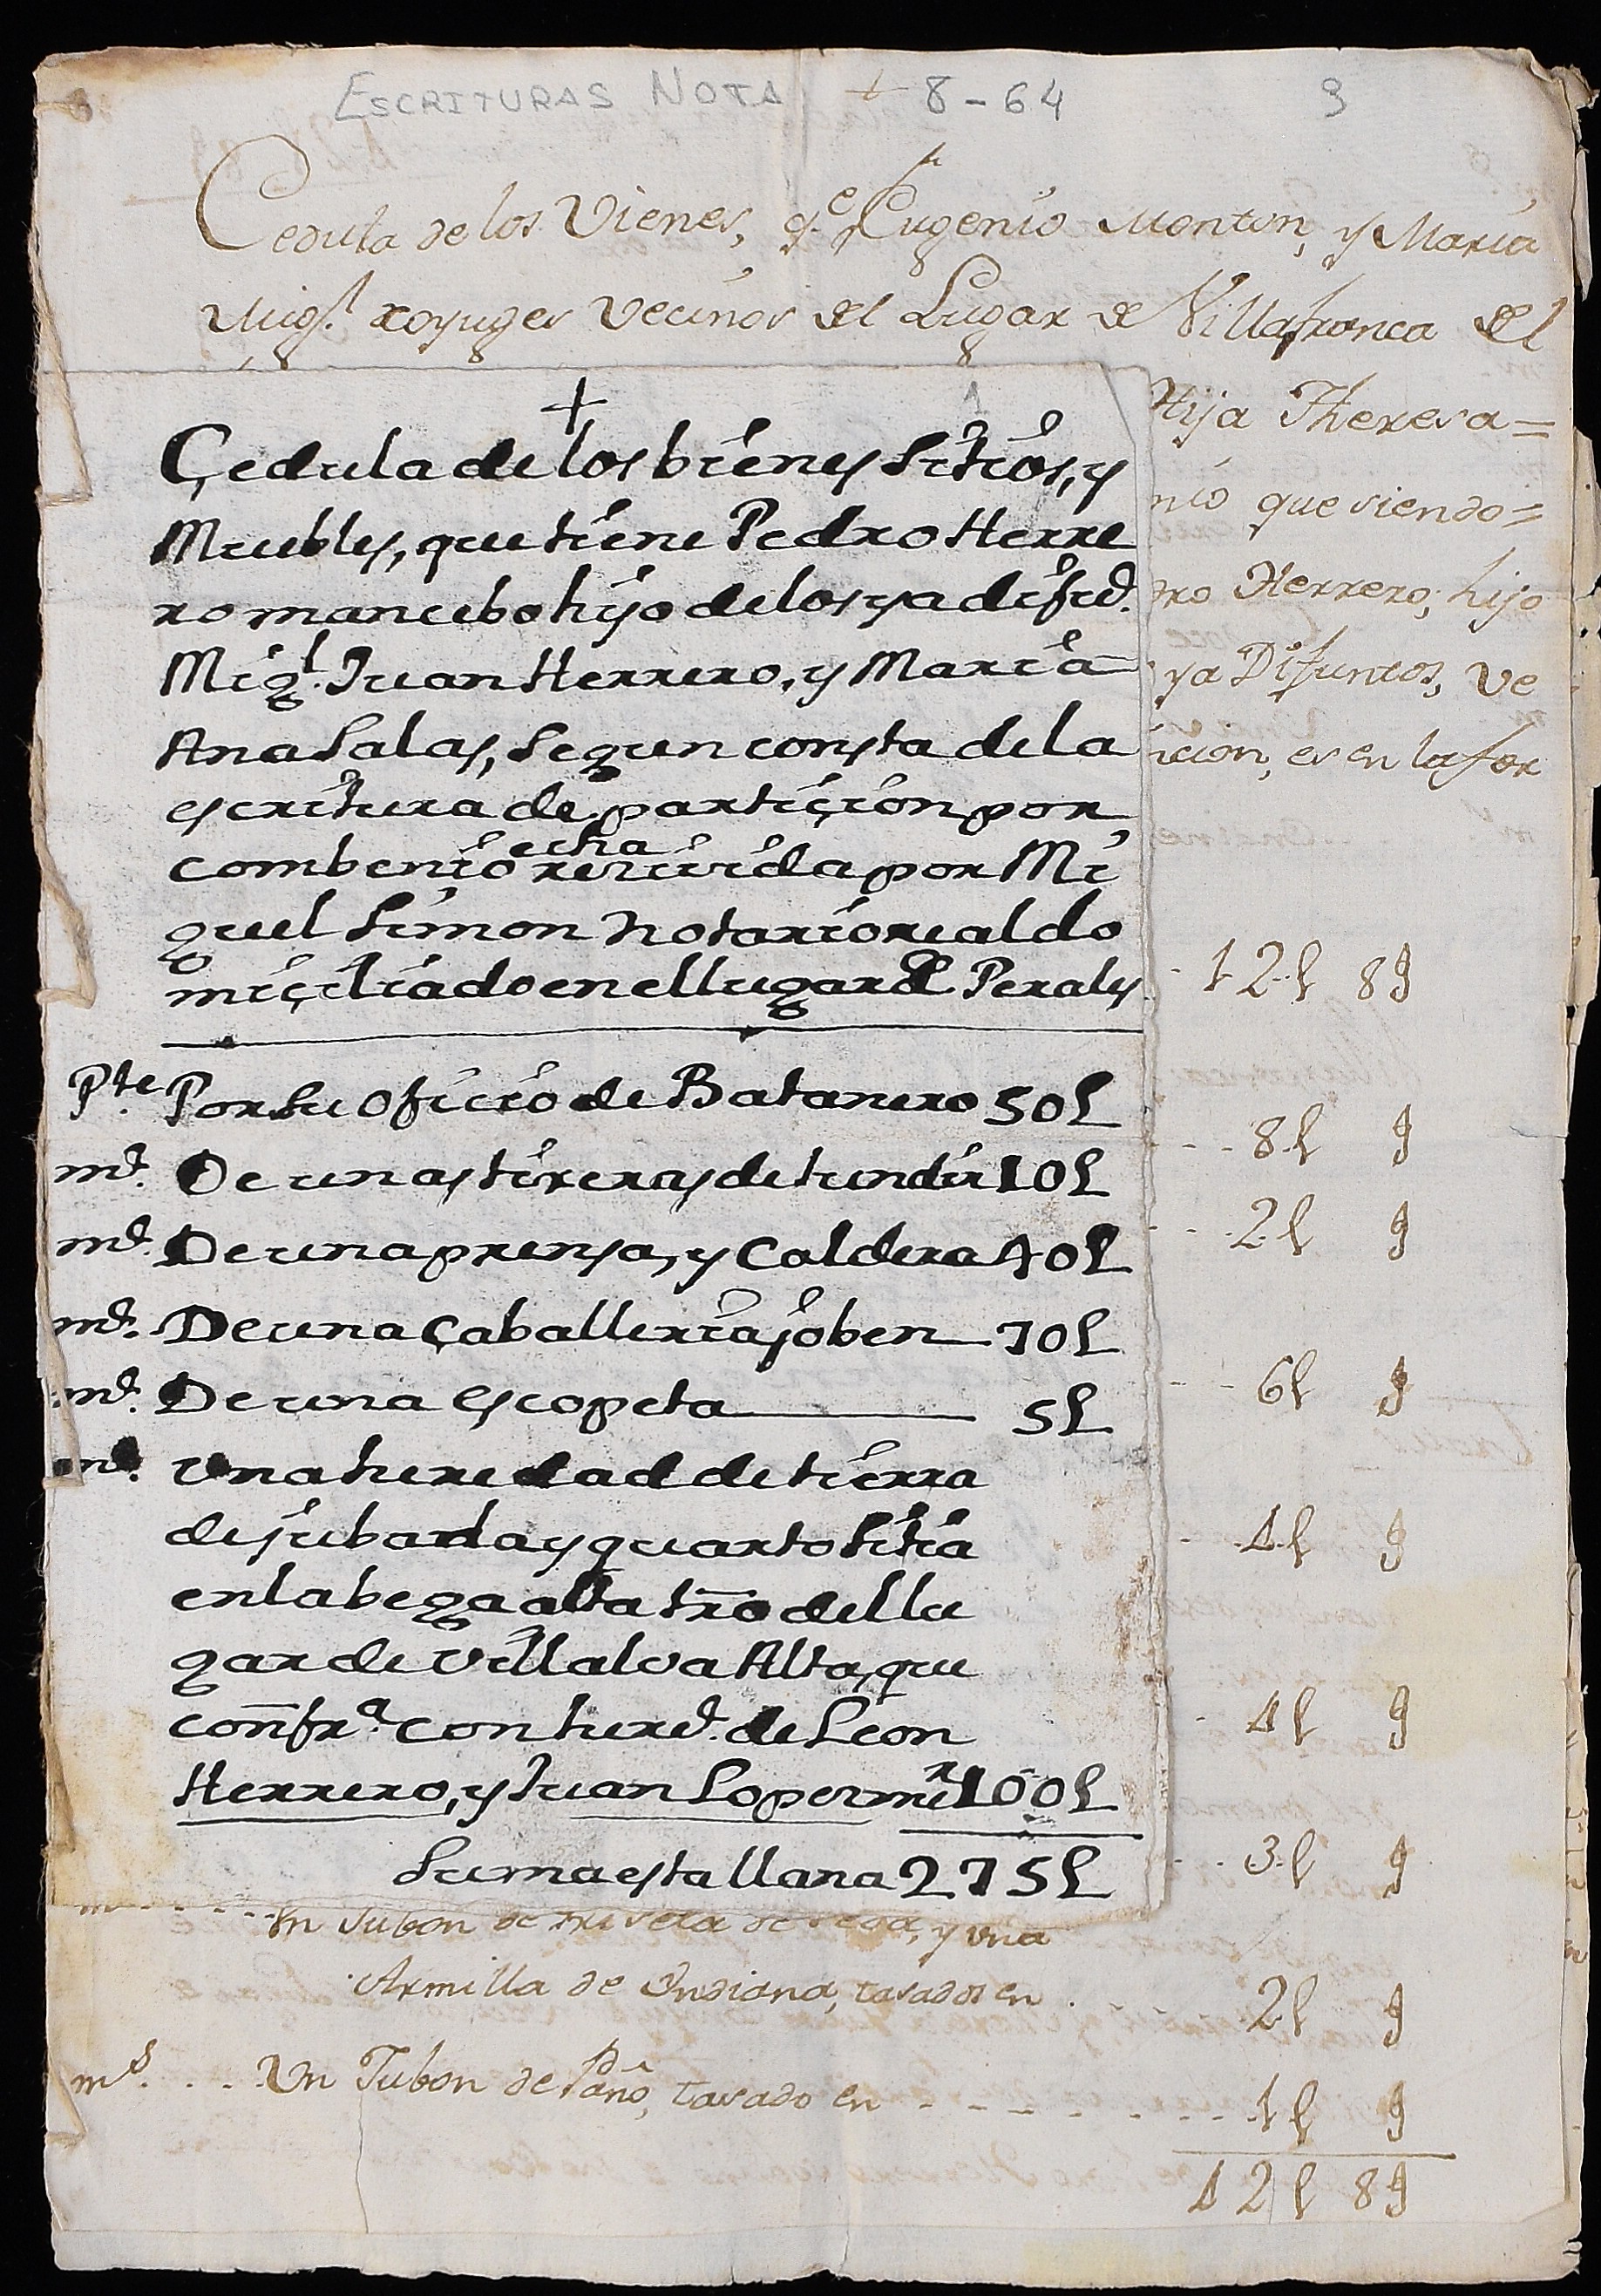 ESCRITURAS NOTA + 8-64 9
Cedula de los Vienes, q.e Eugenio Monton, y Maria
Mig.l coyuges vecinos del Lugar de Villafranca del
Hija Theresa=
nio que siendo=
dro Herrero, hijo
ya Difuntos, ve
icion, es en la for
+ 1
Çedula de los bienes sitios, y
Muebles, que tiene Pedro Herre
ro mancebo hijo de los ya difud.
Mig.l Juan Herrero, y Maria
Ana Salas, segun consta de la
escritura de partiçion por
combenio echa reciuida por Mi
guel Simon notario real do
miçiliado en el lugar del Perales
P.te Por su oficio de Batanero 50L
md. De unas tixeras de tundir 10L
md. De una prensa, y Caldera 40L
md. De una Çaballeria joben 70L
md. De una escopeta 5L
md. Una heredad de tierra
de jubada y quarto sitia
en la bega alta tr̄o del lu
gar de Villalva Alta, que
con̄fr.a con hered. de Leon
Herrero, y Juan Lopez mr 100L
Suma esta llana 275L
12 l 8 s
8 l s
2 l s
6 l s
4 l s
4 l s
3 l s
Un Jubon de de seda, y una
Armilla de Indiana, tasados en 2 l s
md. Un Jubon de Paño, tasado en 1 l s
42 l 8 s